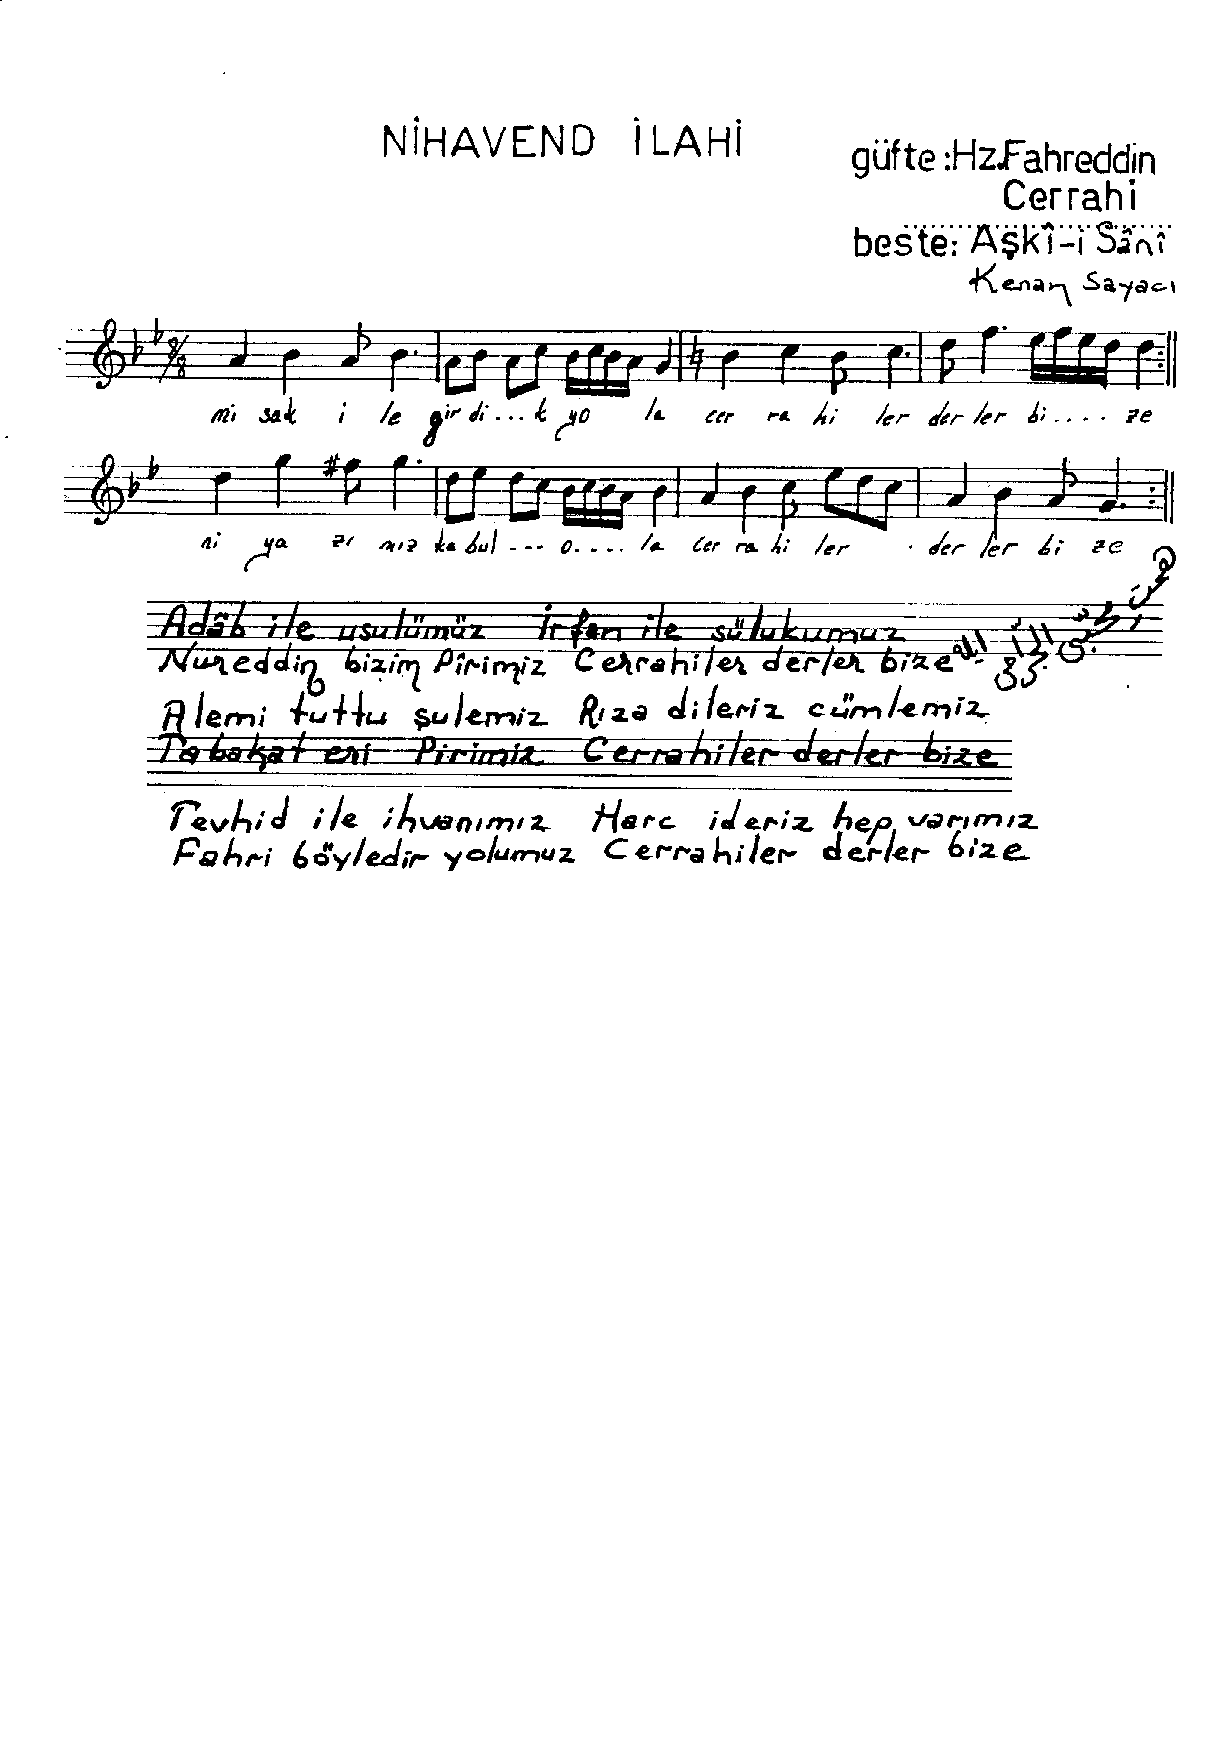 NİHAVEND İLAHİ
güfte :Hz.Fahreddin
Cerrahi
beste: Aşkî-i Sânî
Kenan Sayacı
9/8
mi sak i le gir di...k yo la cer ra hi ler der ler bi.... ze
ni ya zı mız ka bul --- o.... la cer ra hi ler der ler bi ze
Adâb ile usulümüz İrfan ile sülukumuz
Nureddin bizim Pîrimiz Cerrahiler derler bize
Alemi tuttu şulemiz Rıza dileriz cümlemiz
Tabakat eri Pirimiz Cerrahiler derler bize
Tevhid ile ihvanımız Harc ideriz hep varımız
Fahri böyledir yolumuz Cerrahiler derler bize